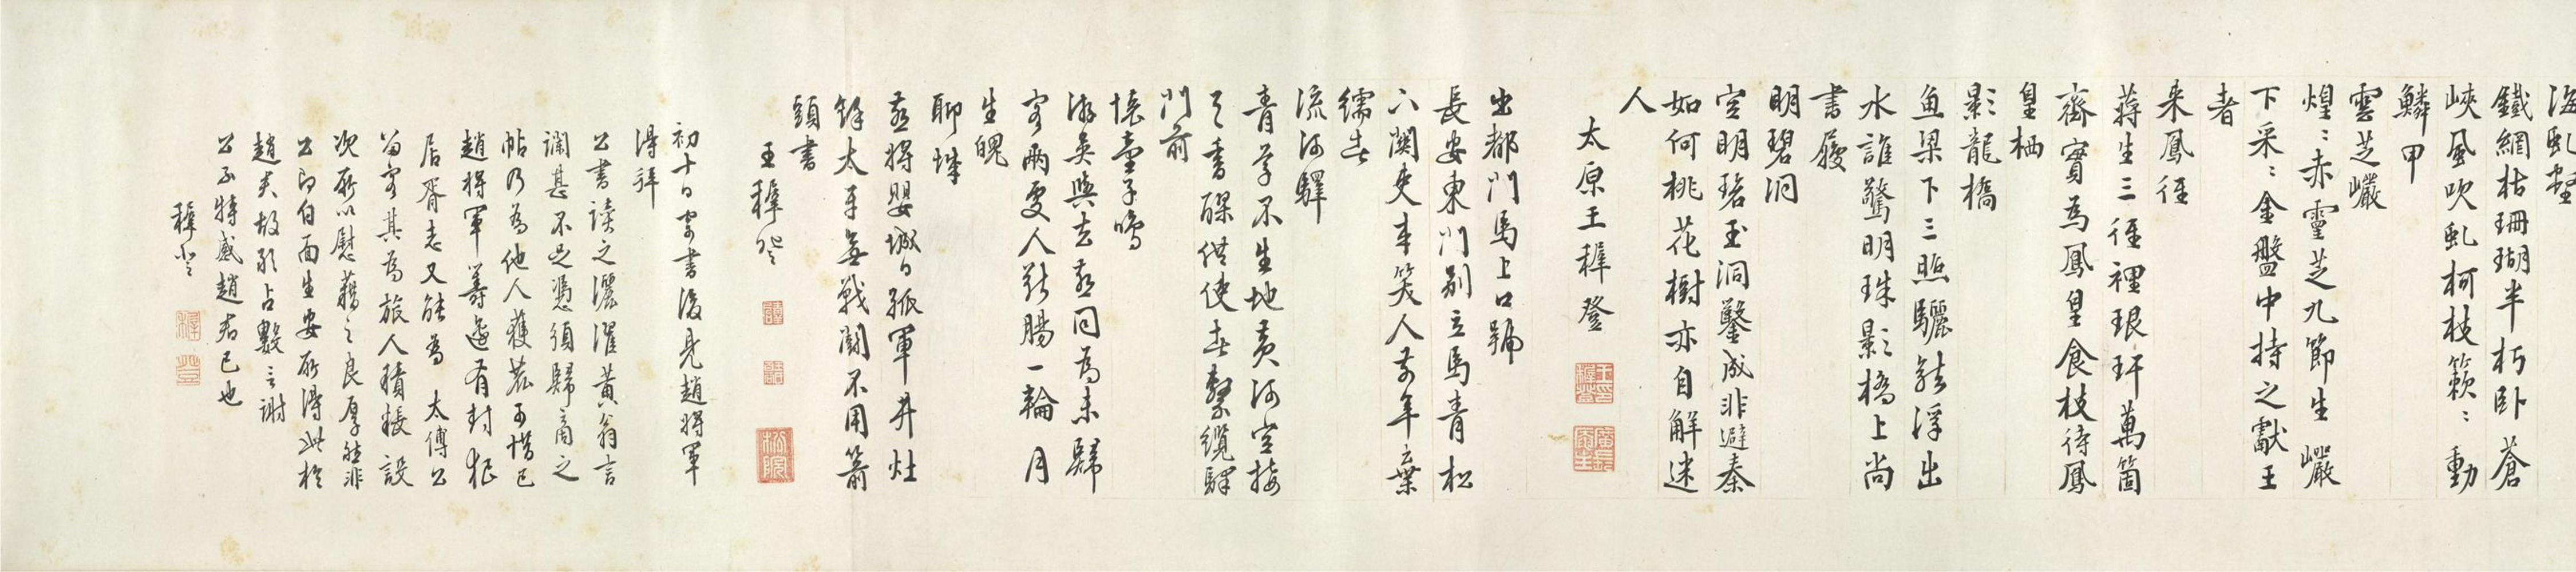 海虬壑
鐵網枯珊瑚半朽卧蒼
峽風吹虬柯枝籟〻動
鱗甲
雲芝巖
煌〻赤靈芝九節生巖
下采〻金盤中持之獻王
者
来鳳徑
蔣生三徑裡琅玕萬箇
齊實為鳳皇食枝待鳳
皇栖
影龍橋
魚梁下三照驪龍浮出
水誰驚明珠影橋上尚
書履
明碧洞
空明碧玉洞鑿成非避秦
如何桃花樹亦自解迷
人
太原王穉登
出都門馬上口號
長安東門別立馬青松
八關吏未笑人前年棄
繻去
流河驛
青草不生地黄河空接
天書醪供使去繫纜驛
門前
懷壺子鳴
游吳與去燕同為未歸
客兩處人斷腸一輪月
生魄
聊城
燕將嬰城日孤軍井灶
餘太平無戰鬪不用箭
頭書
王穉登
初十日寄書後見趙將軍
得拜
公書讀之灑濯黄翁言
讕甚不足憑須歸啇之
帖乃為他人獲
趙將軍籌邊有封狼
居胥志又能為 太傅公
留客其為旅人積粻設
次所以慰藉之良厚能非
公即白面生安所得此於
趙夫故敢占數言謝
公不特感趙君已也
穉登